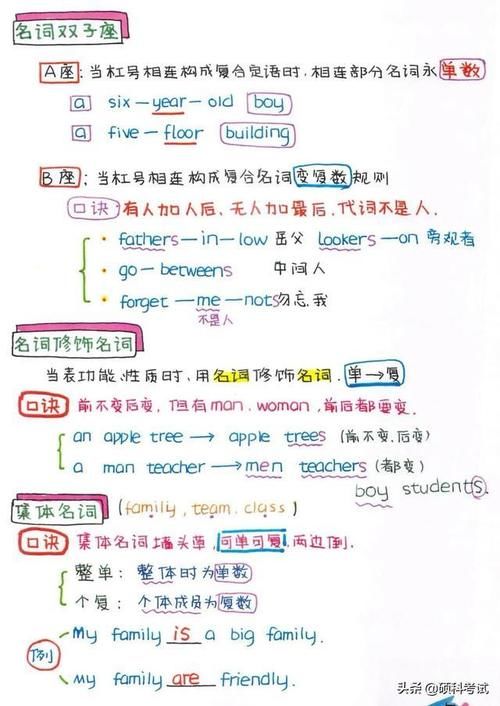 名词双子座
A座：当杠号相连构成复合定语时，相连部分名词永单数
a six—year—old boy
a five—floor building
B座：当杠号相连构成复合名词变复数规则
口诀：有人加人后、无人加最后，代词不是人.
fathers—in—low 岳父 lookers—on 旁观者
go—betweens 中间人
forget—me—nots 勿忘我
不是人
名词修饰名词
当表功能、性质时，用名词修饰名词. 单→复
口诀 前不变后变，但有man. woman，前后都要变.
an apple tree → apple trees (前不变，后变)
a man teacher → men teachers (都变)
boy students.
集体名词 (family, team. class)
口诀 集体名词墙头草，可单可复，两边倒.
整单：整体时为单数
个复：个体成员为复数
例
My family is a big family.
My family are friendly.
头条 @硕科考试